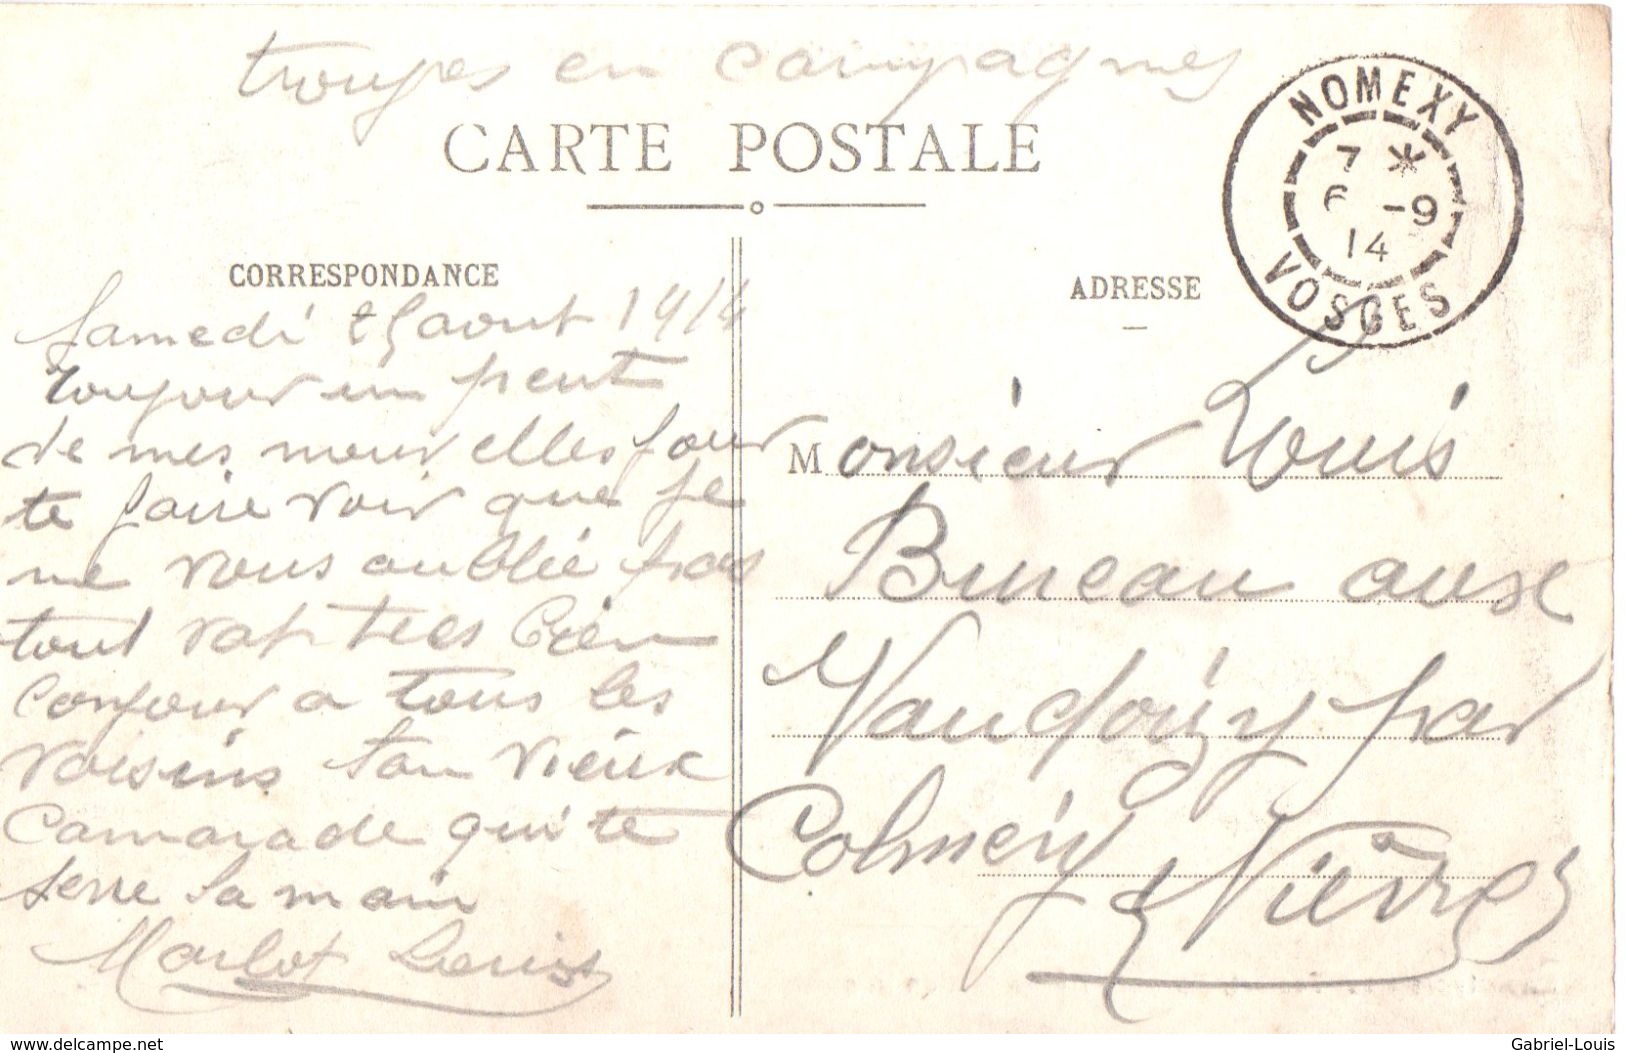 troupes en campagnes
CARTE POSTALE
NOMEXY
7 *
6 -9
14
VOSGES
CORRESPONDANCE
ADRESSE
Samedi aout 1914
Toujour un peut
de mes nouvelles pour
te faire voir que je
ne vous oublié pas
tout va tres bien
bonjour a tous les
voisins ton vieux
camarade qui te
serre la main
Marlot Denis
Monsieur Louis
Bureau aux
Vaudoisy par
Colmery
Nièvre
www.delcampe.net
Gabriel-Louis